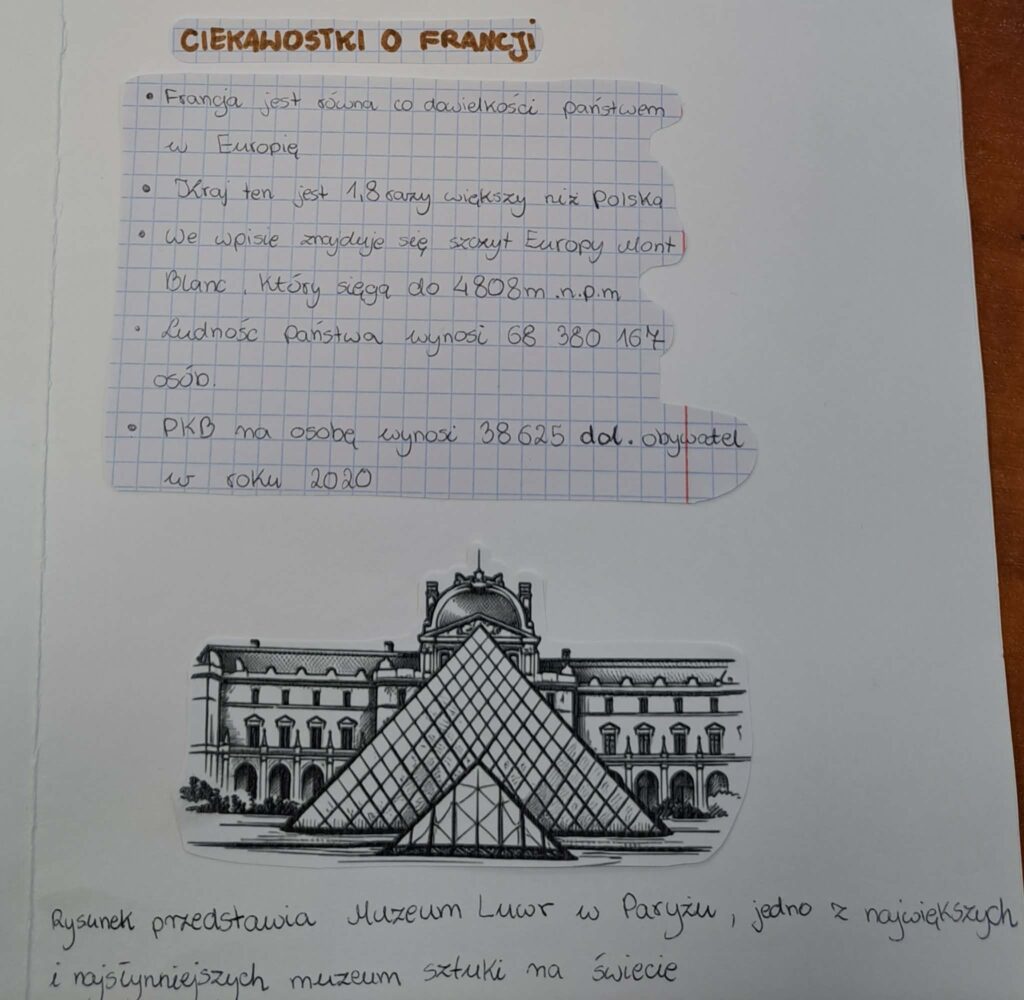 CIEKAWOSTKI O FRANCJI
• Francja jest równa co dowielkości państwem
w Europię
• Kraj ten jest 1,8 razy większy niż Polską
• We wpisie znajduje się szczyt Europy Mont
Blanc, który sięga do 4808m.n.p.m
• Ludność państwa wynosi 68 380 167
osób.
• PKB na osobę wynosi 38625 dol. obywatel
w roku 2020
Rysunek przedstawia Muzeum Luwr w Paryżu, jedno z największych
i najsłynniejszych muzeum sztuki na świecie